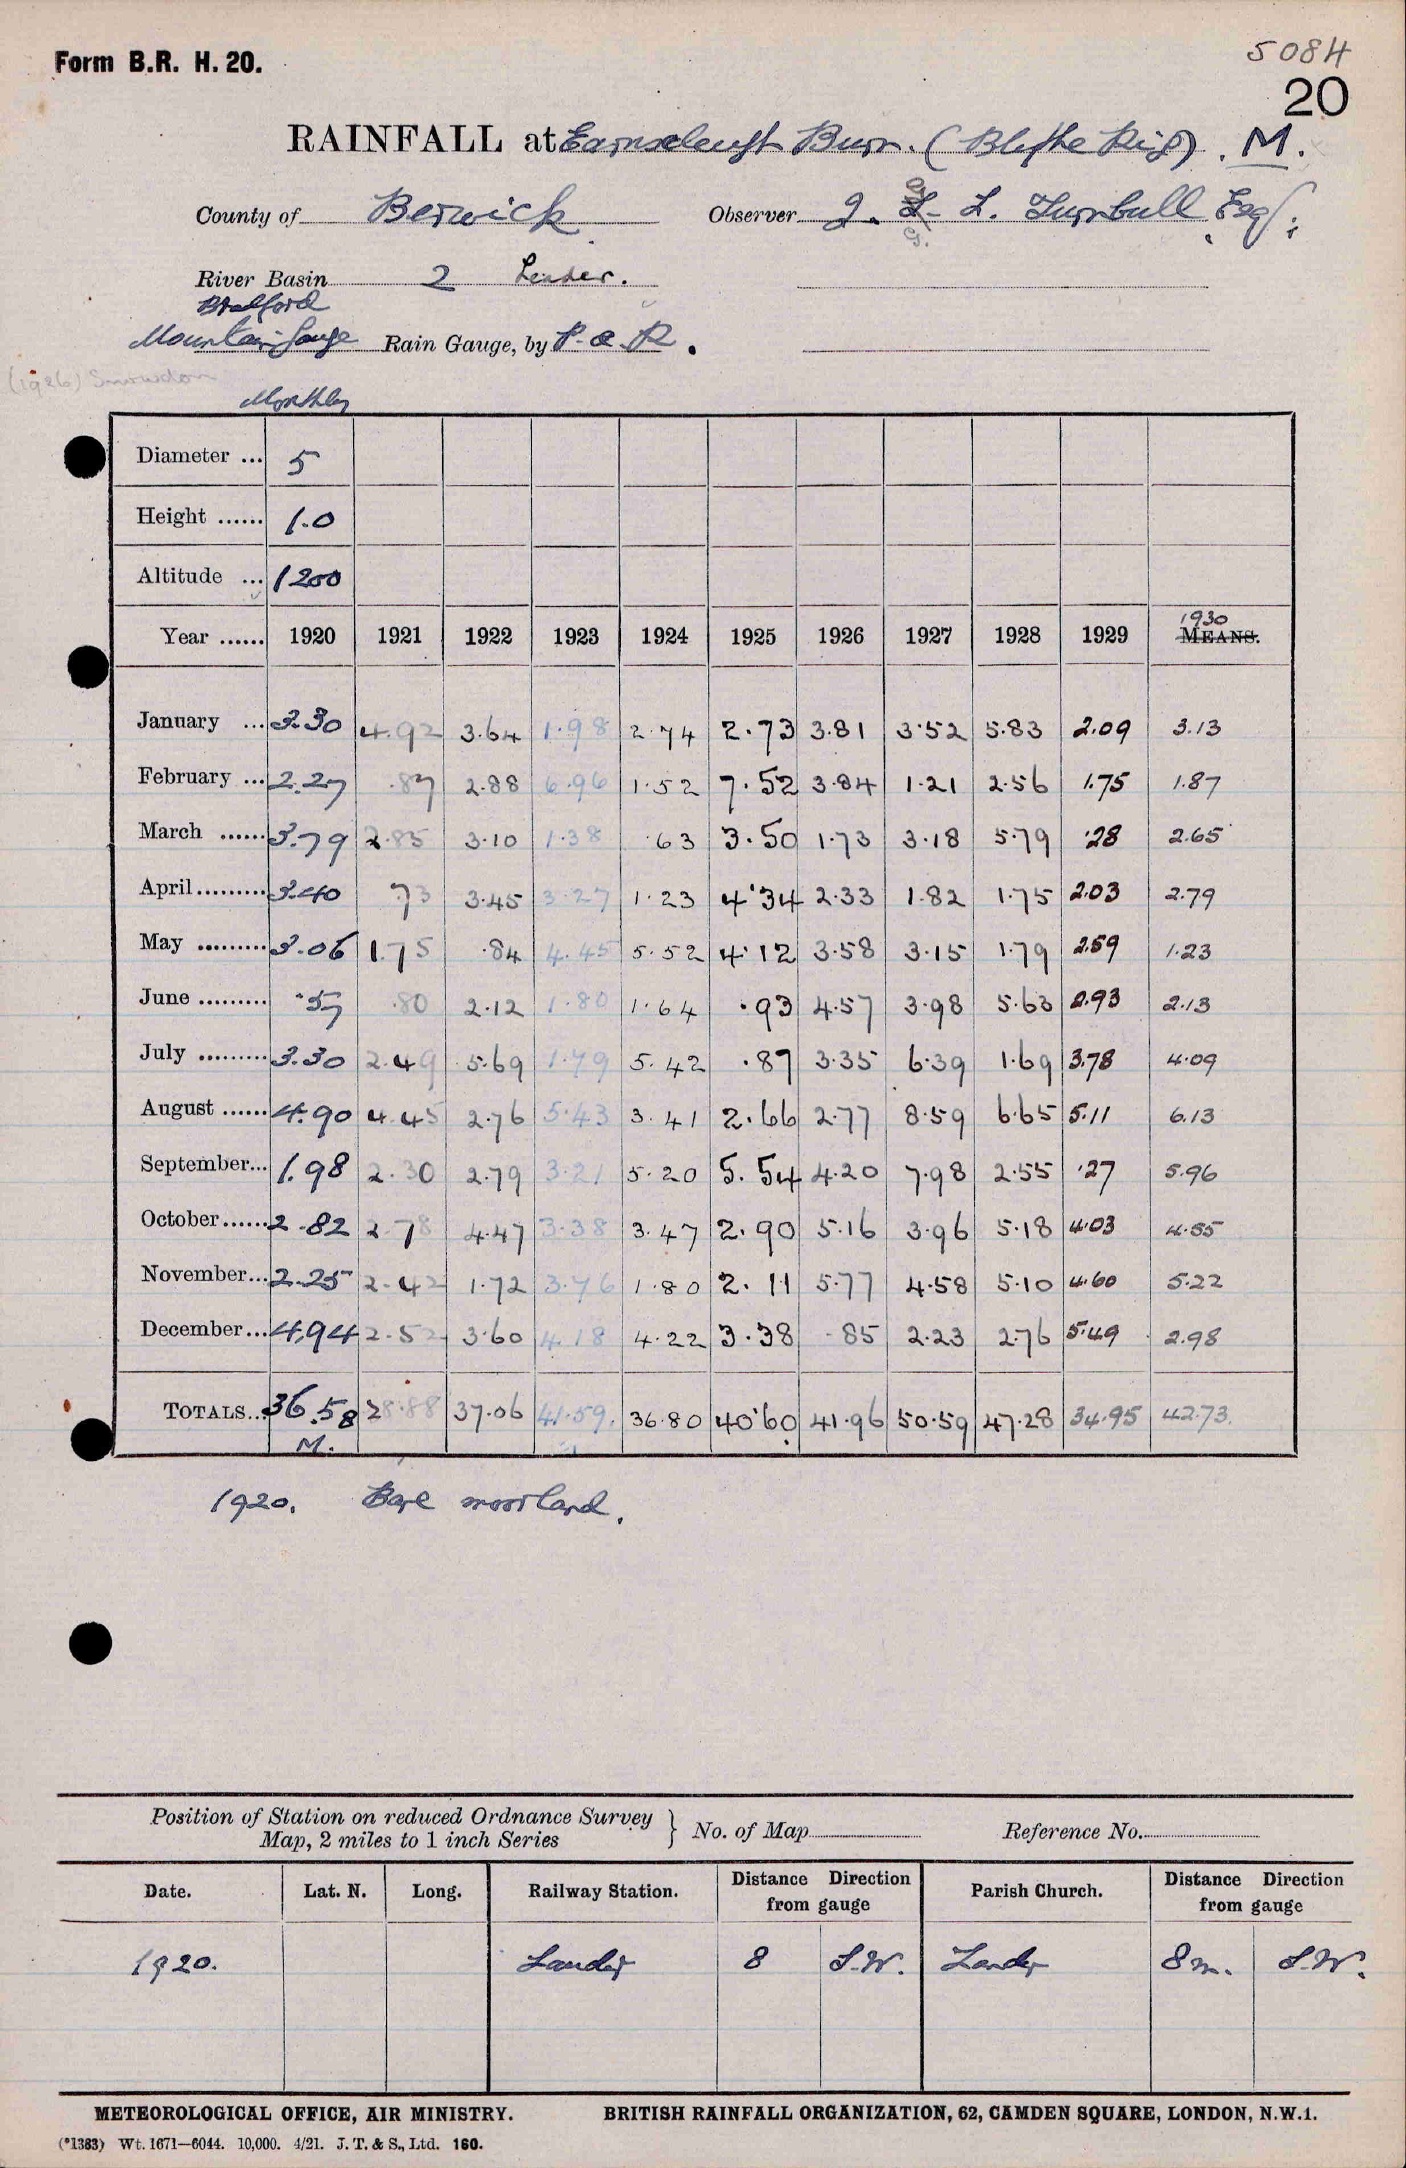 Form B.R. H. 20.
5084
20
RAINFALL at Earnscleugh Burn. (Blythe Rig). M.
County of Berwick Observer J. L. Turnbull Esq.
River Basin 2 Leader.
Bradford
Mountain Gauge Rain Gauge, by P. & R.
(1926) Snowdon
Monthly
Diameter ... 5
Height ...... 1.0
Altitude ... 1200
Year ...... 1920 1921 1922 1923 1924 1925 1926 1927 1928 1929 1930 MEANS.
January ... 3.30 4.92 3.64 1.98 2.74 2.73 3.81 3.52 5.83 2.09 3.13
February ... 2.27 .87 2.88 6.96 1.52 7.52 3.84 1.21 2.56 1.75 1.87
March ...... 3.79 2.85 3.10 1.38 .63 3.50 1.73 3.18 5.79 .28 2.65
April ......... 3.40 .73 3.45 3.27 1.23 4.34 2.33 1.82 1.75 2.03 2.79
May ......... 3.06 1.75 .84 4.45 5.52 4.12 3.58 3.15 1.79 2.59 1.23
June ......... .57 .80 2.12 1.80 1.64 .93 4.57 3.98 5.63 2.93 2.13
July ......... 3.30 2.49 5.69 1.79 5.42 .87 3.35 6.39 1.69 3.78 4.09
August ...... 4.90 4.45 2.76 5.43 3.41 2.66 2.77 8.59 6.65 5.11 6.13
September... 1.98 2.30 2.79 3.21 5.20 5.54 4.20 7.98 2.55 .27 5.96
October...... 2.82 2.78 4.47 3.38 3.47 2.90 5.16 3.96 5.18 4.03 4.55
November... 2.25 2.42 1.72 3.76 1.80 2.11 5.77 4.58 5.10 4.60 5.22
December... 4.94 2.52 3.60 4.18 4.22 3.38 .85 2.23 2.76 5.49 2.98
TOTALS... 36.58 28.88 37.06 41.59 36.80 40.60 41.96 50.59 47.28 34.95 42.73
M.
1920. Bare moorland.
Position of Station on reduced Ordnance Survey
Map, 2 miles to 1 inch Series } No. of Map Reference No.
Date. Lat. N. Long. Railway Station. Distance Direction from gauge Parish Church. Distance Direction from gauge
1920. Lauder 8 S.W. Lauder 8m. S.W.
METEOROLOGICAL OFFICE, AIR MINISTRY. BRITISH RAINFALL ORGANIZATION, 62, CAMDEN SQUARE, LONDON, N.W.1.
(*1383) Wt. 1671—6044. 10,000. 4/21. J. T. & S., Ltd. 160.